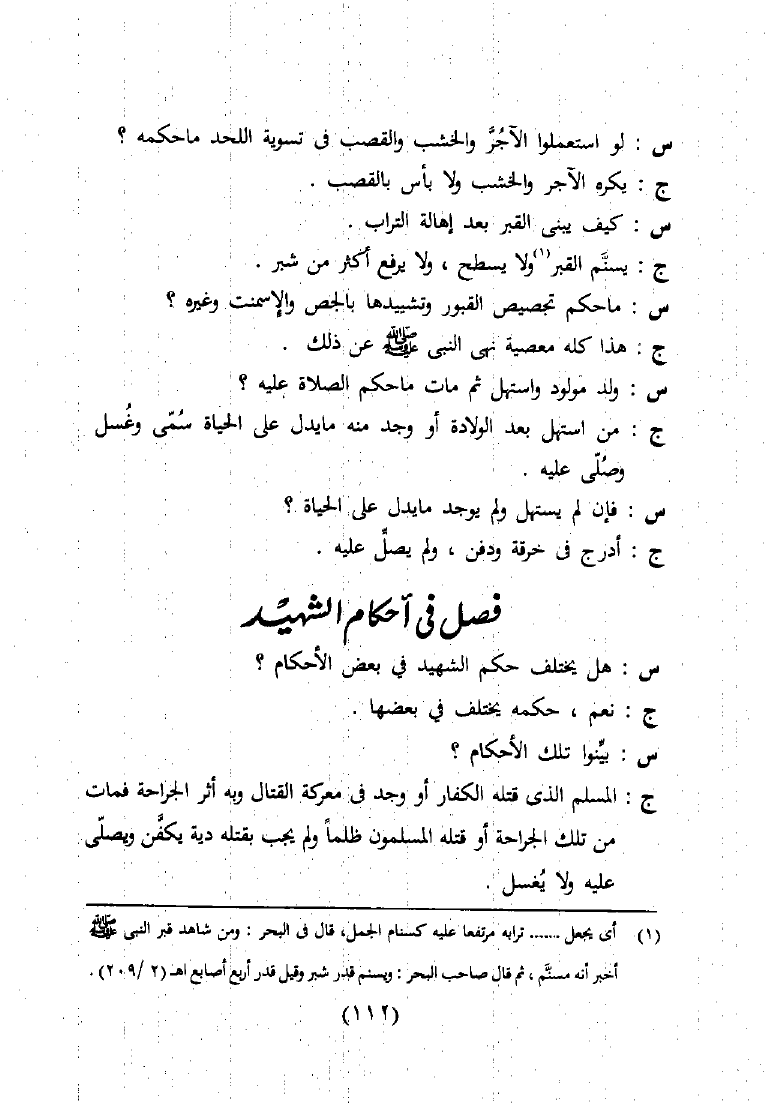 س : لو استعملوا الآجُرَّ والخشب والقصب فى تسوية اللحد ماحكمه ؟
ج : يكره الآجر والخشب ولا بأس بالقصب .
س : كيف يبنى القبر بعد إهالة التراب .
ج : يسنَّم القبر(١) ولا يسطح ، ولا يرفع أكثر من شبر .
س : ماحكم تجصيص القبور وتشييدها بالجص والإسمنت وغيره ؟
ج : هذا كله معصية نهى النبى ﷺ عن ذلك .
س : ولد مولود واستهل ثم مات ماحكم الصلاة عليه ؟
ج : من استهل بعد الولادة أو وجد منه مايدل على الحياة سُمّى وغُسل
وصُلّى عليه .
س : فإن لم يستهل ولم يوجد مايدل على الحياة ؟
ج : أدرج فى خرقة ودفن ، ولم يصلِّ عليه .
فصل فى أحكام الشهيد
س : هل يختلف حكم الشهيد في بعض الأحكام ؟
ج : نعم ، حكمه يختلف في بعضها .
س : بيِّنوا تلك الأحكام ؟
ج : المسلم الذى قتله الكفار أو وجد فى معركة القتال وبه أثر الجراحة فمات
من تلك الجراحة أو قتله المسلمون ظلماً ولم يجب بقتله دية يكفَّن ويصلّى
عليه ولا يُغسل .
(١) أى يجعل ....... ترابه مرتفعا عليه كسنام الجمل، قال فى البحر : ومن شاهد قبر النبى ﷺ
أخبر أنه مسنَّم ، ثم قال صاحب البحر : ويسنم قدر شبر وقيل قدر أربع أصابع اهـ (٢ / ٢٠٩) .
(١١٢)